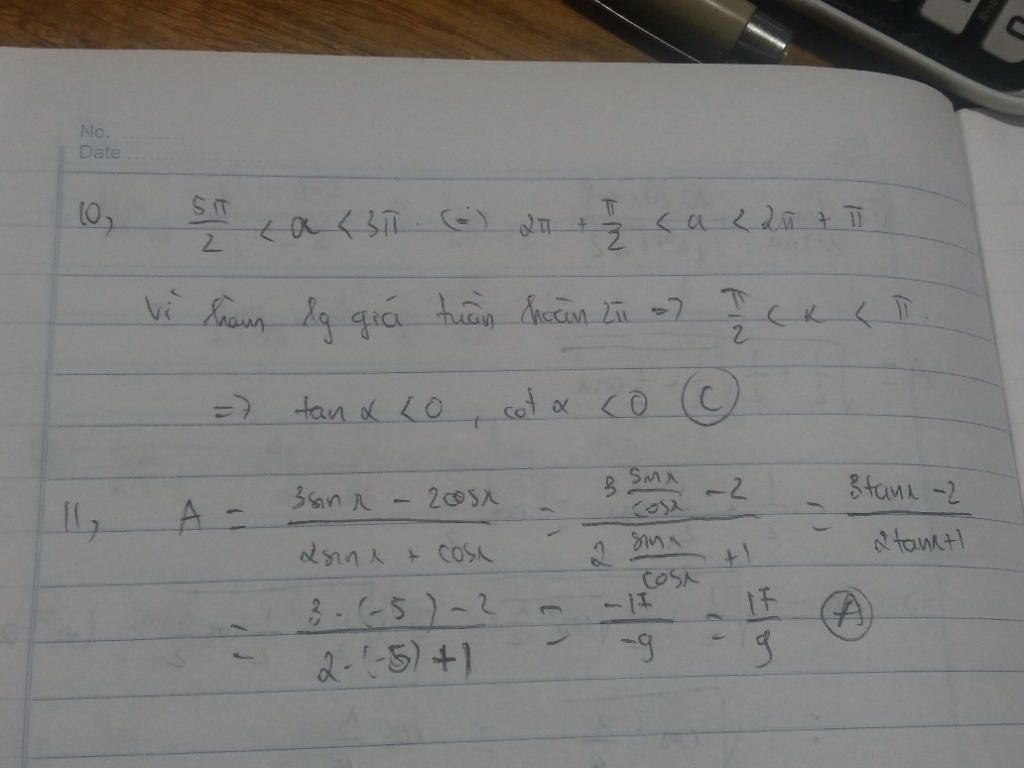 No. ............
Date ........................
10, 5π/2 < a < 3π. (=) 2π + π/2 < a < 2π + π
Vì hàm lg giá tuần hoàn 2π => π/2 < α < π.
=> tan α < 0, cot α < 0 (C)
11, A = (3sinx - 2cosx)/(2sinx + cosx) = (3 sinx/cosx - 2)/(2 sinx/cosx + 1) = (3tanx - 2)/(2tanx+1)
= (3.(-5) - 2)/(2.(-5) + 1) = -17/-9 = 17/9 (A)